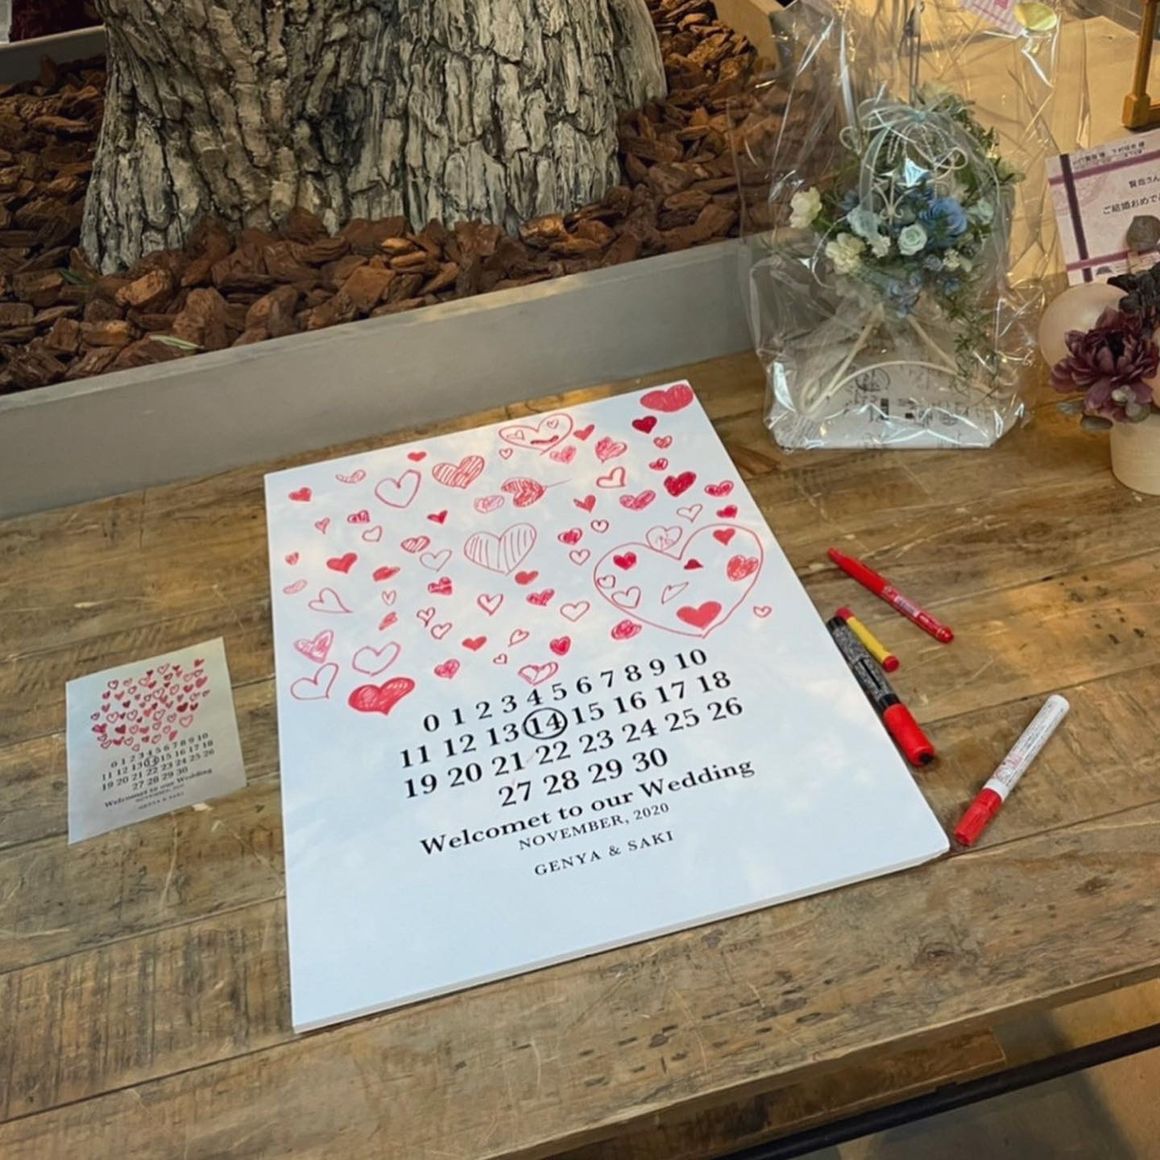 0 1 2 3 4 5 6 7 8 9 10
11 12 13 14 15 16 17 18
19 20 21 22 23 24 25 26
27 28 29 30
Welcomet to our Wedding
NOVEMBER, 2020
GENYA & SAKI
0 1 2 3 4 5 6 7 8 9 10
11 12 13 14 15 16 17 18
19 20 21 22 23 24 25 26
27 28 29 30
Welcomet to our Wedding
NOVEMBER, 2020
GENYA & SAKI
賢哉さん
ご結婚おめで